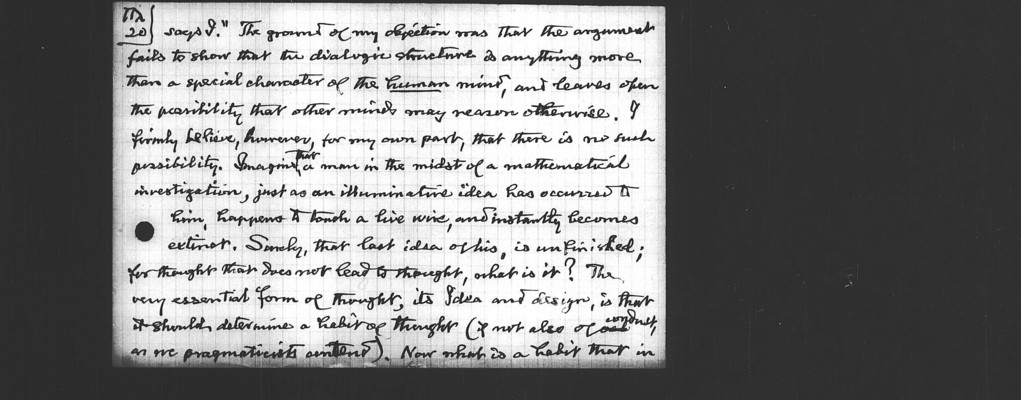 Πλ
20
says I." The ground of my objection was that the argument
fails to show that the dialogic structure is anything more
than a special character of the human mind, and leaves open
the possibility that other minds may reason otherwise. I
firmly believe, however, for my own part, that there is no such
possibility. Imagine that a man in the midst of a mathematical
investigation, just as an illuminative idea has occurred to
him, happens to touch a live wire, and instantly becomes
extinct. Surely, that last idea of his, is unfinished;
for thought that does not lead to thought, what is it? The
very essential form of thought, its Idea and design, is that
it should determine a habit of thought (if not also of conduct,
as we pragmaticists contend). Now what is a habit that in